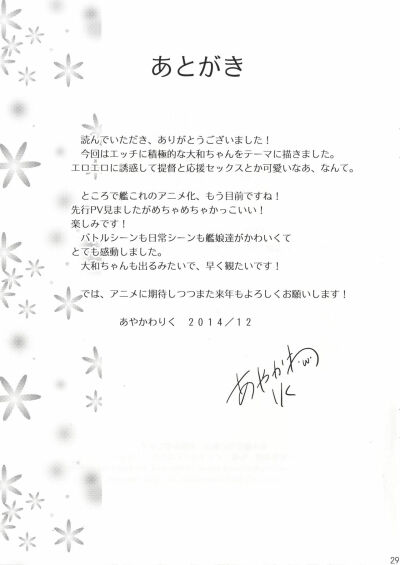 あとがき
読んでいただき、ありがとうございました！
今回はエッチに積極的な大和ちゃんをテーマに描きました。
エロエロに誘惑して提督と応援セックスとか可愛いなあ、なんて。
ところで艦これのアニメ化、もう目前ですね！
先行PV見ましたがめちゃめちゃかっこいい！
楽しみです！
バトルシーンも日常シーンも艦娘達がかわいくて
とても感動しました。
大和ちゃんも出るみたいで、早く観たいです！
では、アニメに期待しつつまた来年もよろしくお願いします！
あやかわりく　２０１４／１２
あやかわりく
29